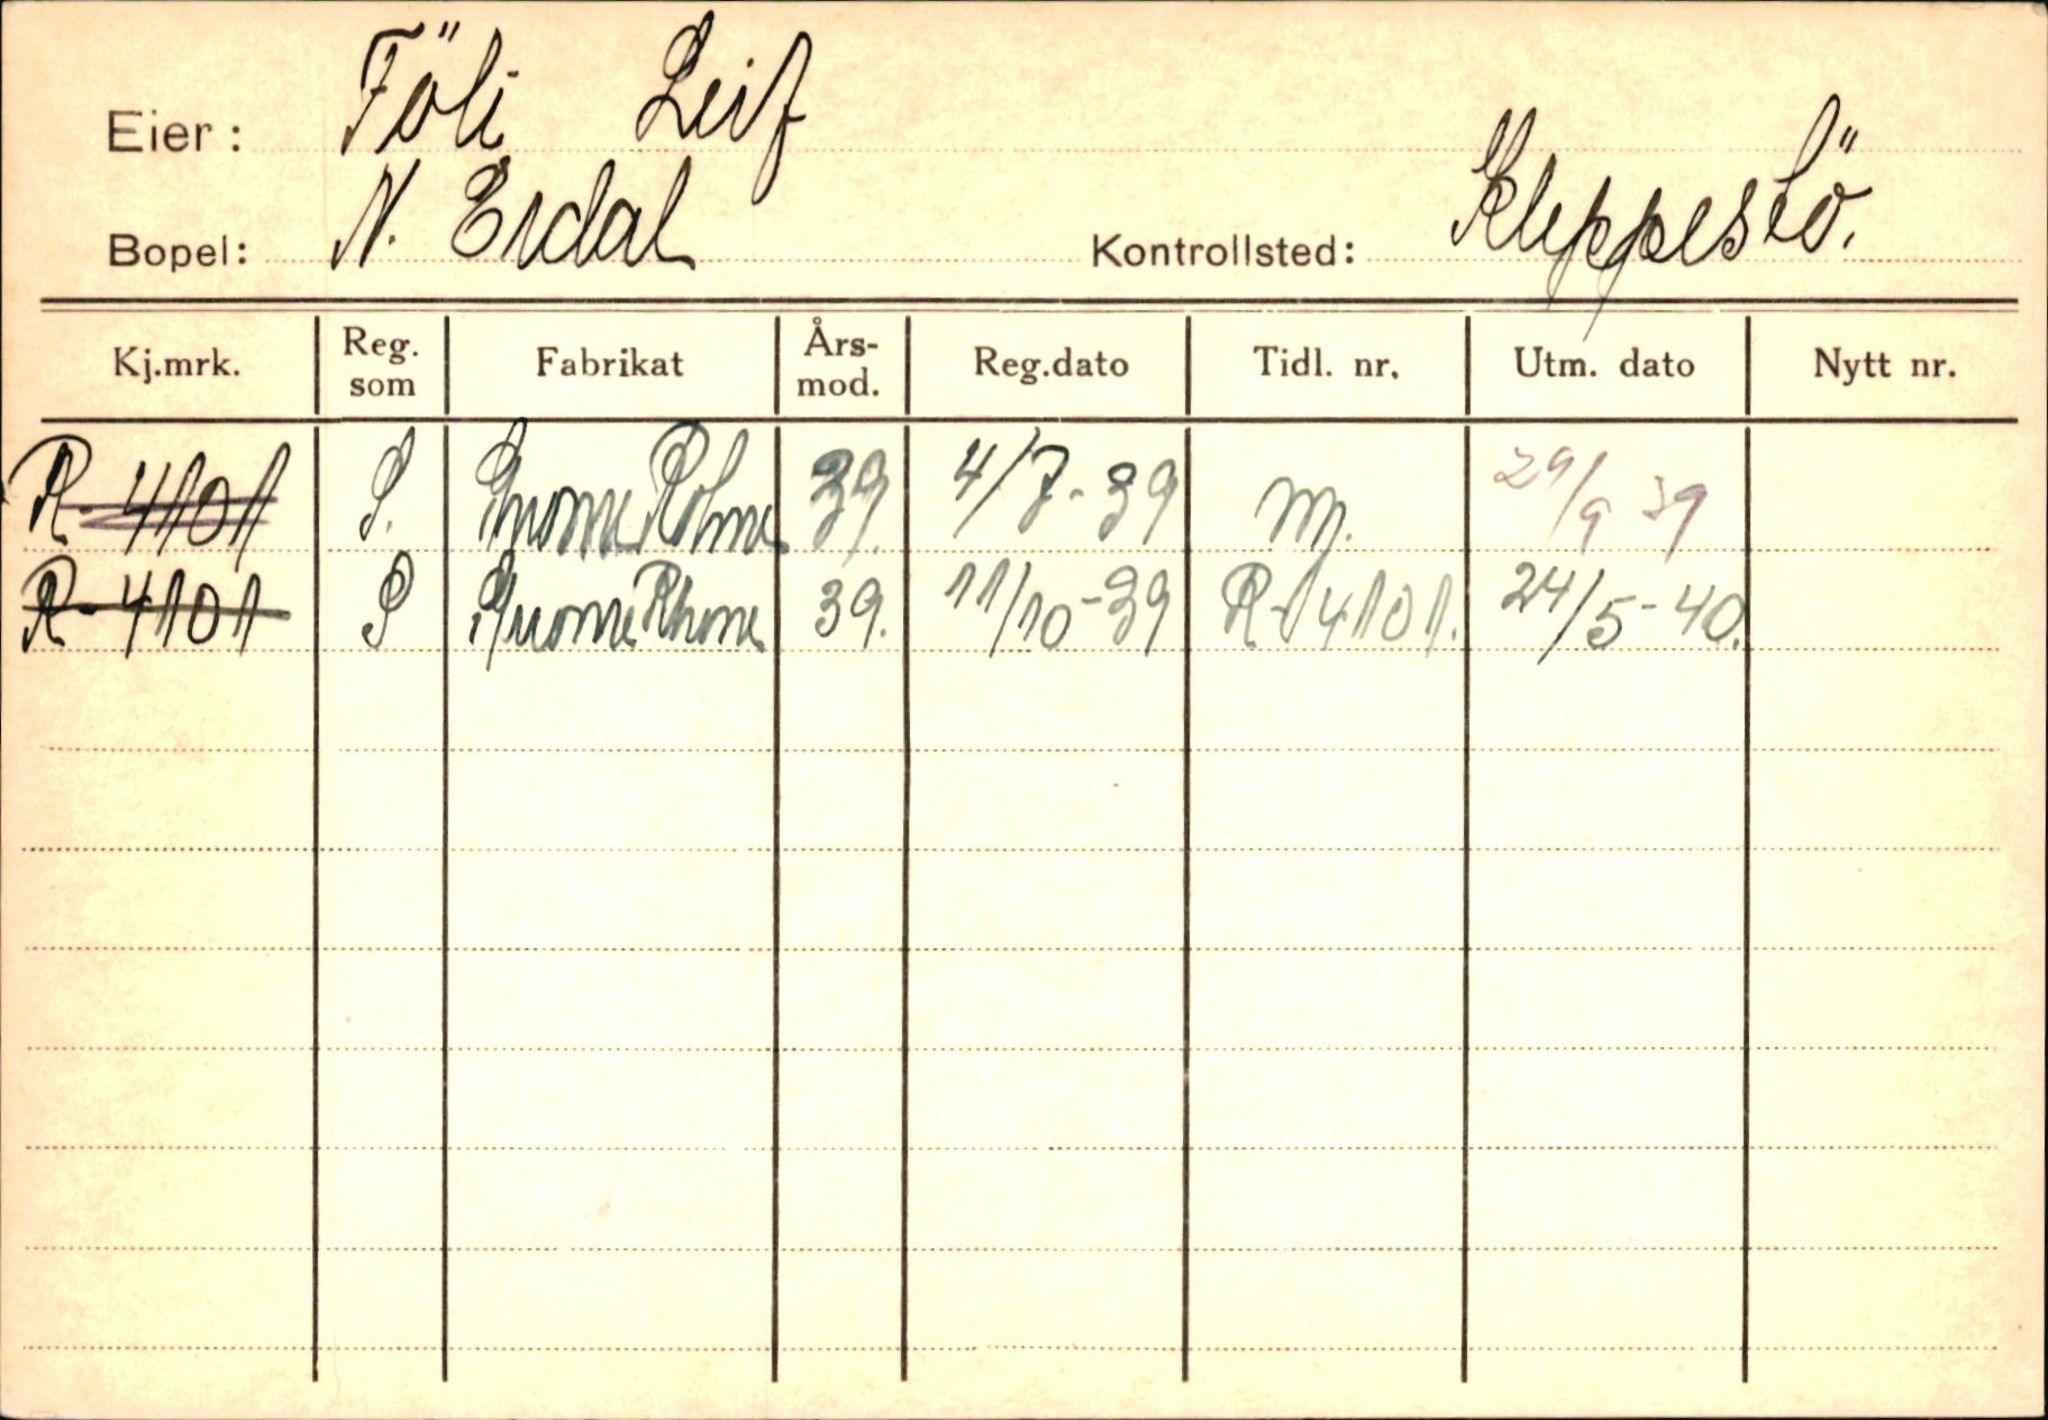 Eier: Föli Leif
Bopel: N. Erdal Kontrollsted: Kleppestö.
Kj.mrk. Reg. som Fabrikat Års-mod. Reg.dato Tidl. nr. Utm. dato Nytt nr.
R-4101 S. Gnome Rohne 39. 4/7-39 m. 29/9 39
R-4101 S Gnome Rhone 39. 11/10-39 R-14101. 24/5-40.